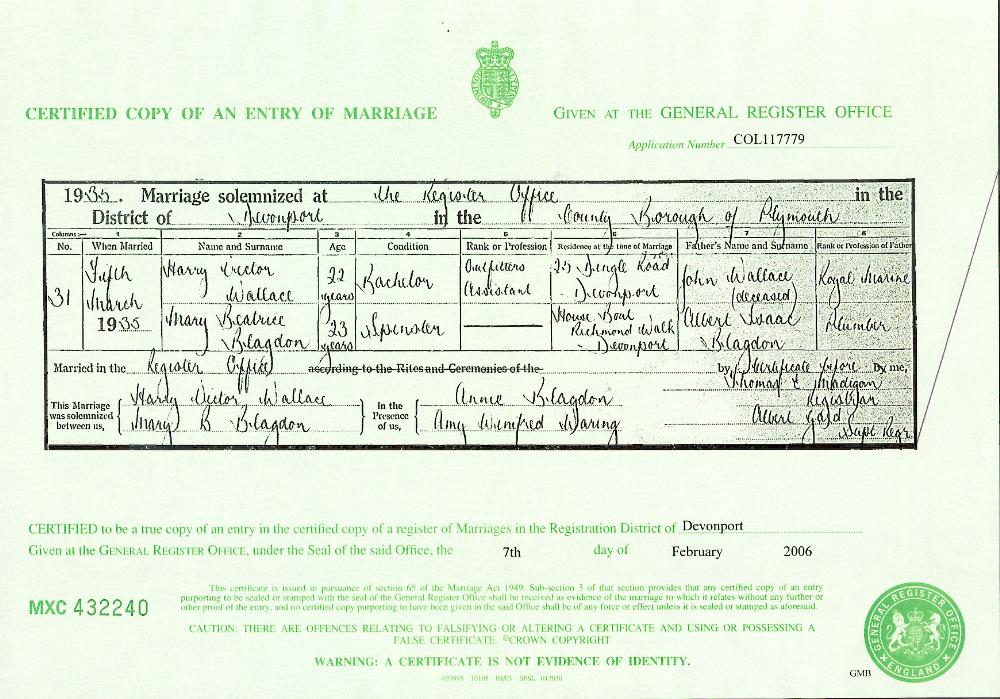 CERTIFIED COPY OF AN ENTRY OF MARRIAGE
GIVEN AT THE GENERAL REGISTER OFFICE
Application Number COL117779
1935. Marriage solemnized at the Register Office in the
District of Devonport in the County Borough of Plymouth
Columns:— 1 2 3 4 5 6 7 8
No. When Married Name and Surname Age Condition Rank or Profession Residence at the time of Marriage Father's Name and Surname Rank or Profession of Father
31 Fifth March 1935
Harry Victor Wallace 22 years Bachelor Outfitters Assistant Dingle Road Devonport John Wallace (deceased) Royal Marine
Mary Beatrice Blagdon 23 years Spinster House Boat Richmond Walk Devonport Albert Isaac Blagdon Plumber
Married in the Register Office according to the Rites and Ceremonies of the by Certificate before By me,
This Marriage was solemnized between us,
Harry Victor Wallace
Mary B Blagdon
In the Presence of us,
Annie Blagdon
Amy Winifred Waring
Thomas E Madigan
Registrar
Albert Gard
Supt Regr
CERTIFIED to be a true copy of an entry in the certified copy of a register of Marriages in the Registration District of Devonport
Given at the GENERAL REGISTER OFFICE, under the Seal of the said Office, the 7th day of February 2006
MXC 432240
This certificate is issued in pursuance of section 65 of the Marriage Act 1949. Sub-section 3 of that section provides that any certified copy of an entry
purporting to be sealed or stamped with the seal of the General Register Office shall be received as evidence of the marriage to which it relates without any further or
other proof of the entry, and no certified copy purporting to have been given in the said Office shall be of any force or effect unless it is sealed or stamped as aforesaid.
CAUTION: THERE ARE OFFENCES RELATING TO FALSIFYING OR ALTERING A CERTIFICATE AND USING OR POSSESSING A
FALSE CERTIFICATE. ©CROWN COPYRIGHT
WARNING: A CERTIFICATE IS NOT EVIDENCE OF IDENTITY.
GENERAL REGISTER OFFICE
ENGLAND
GMB